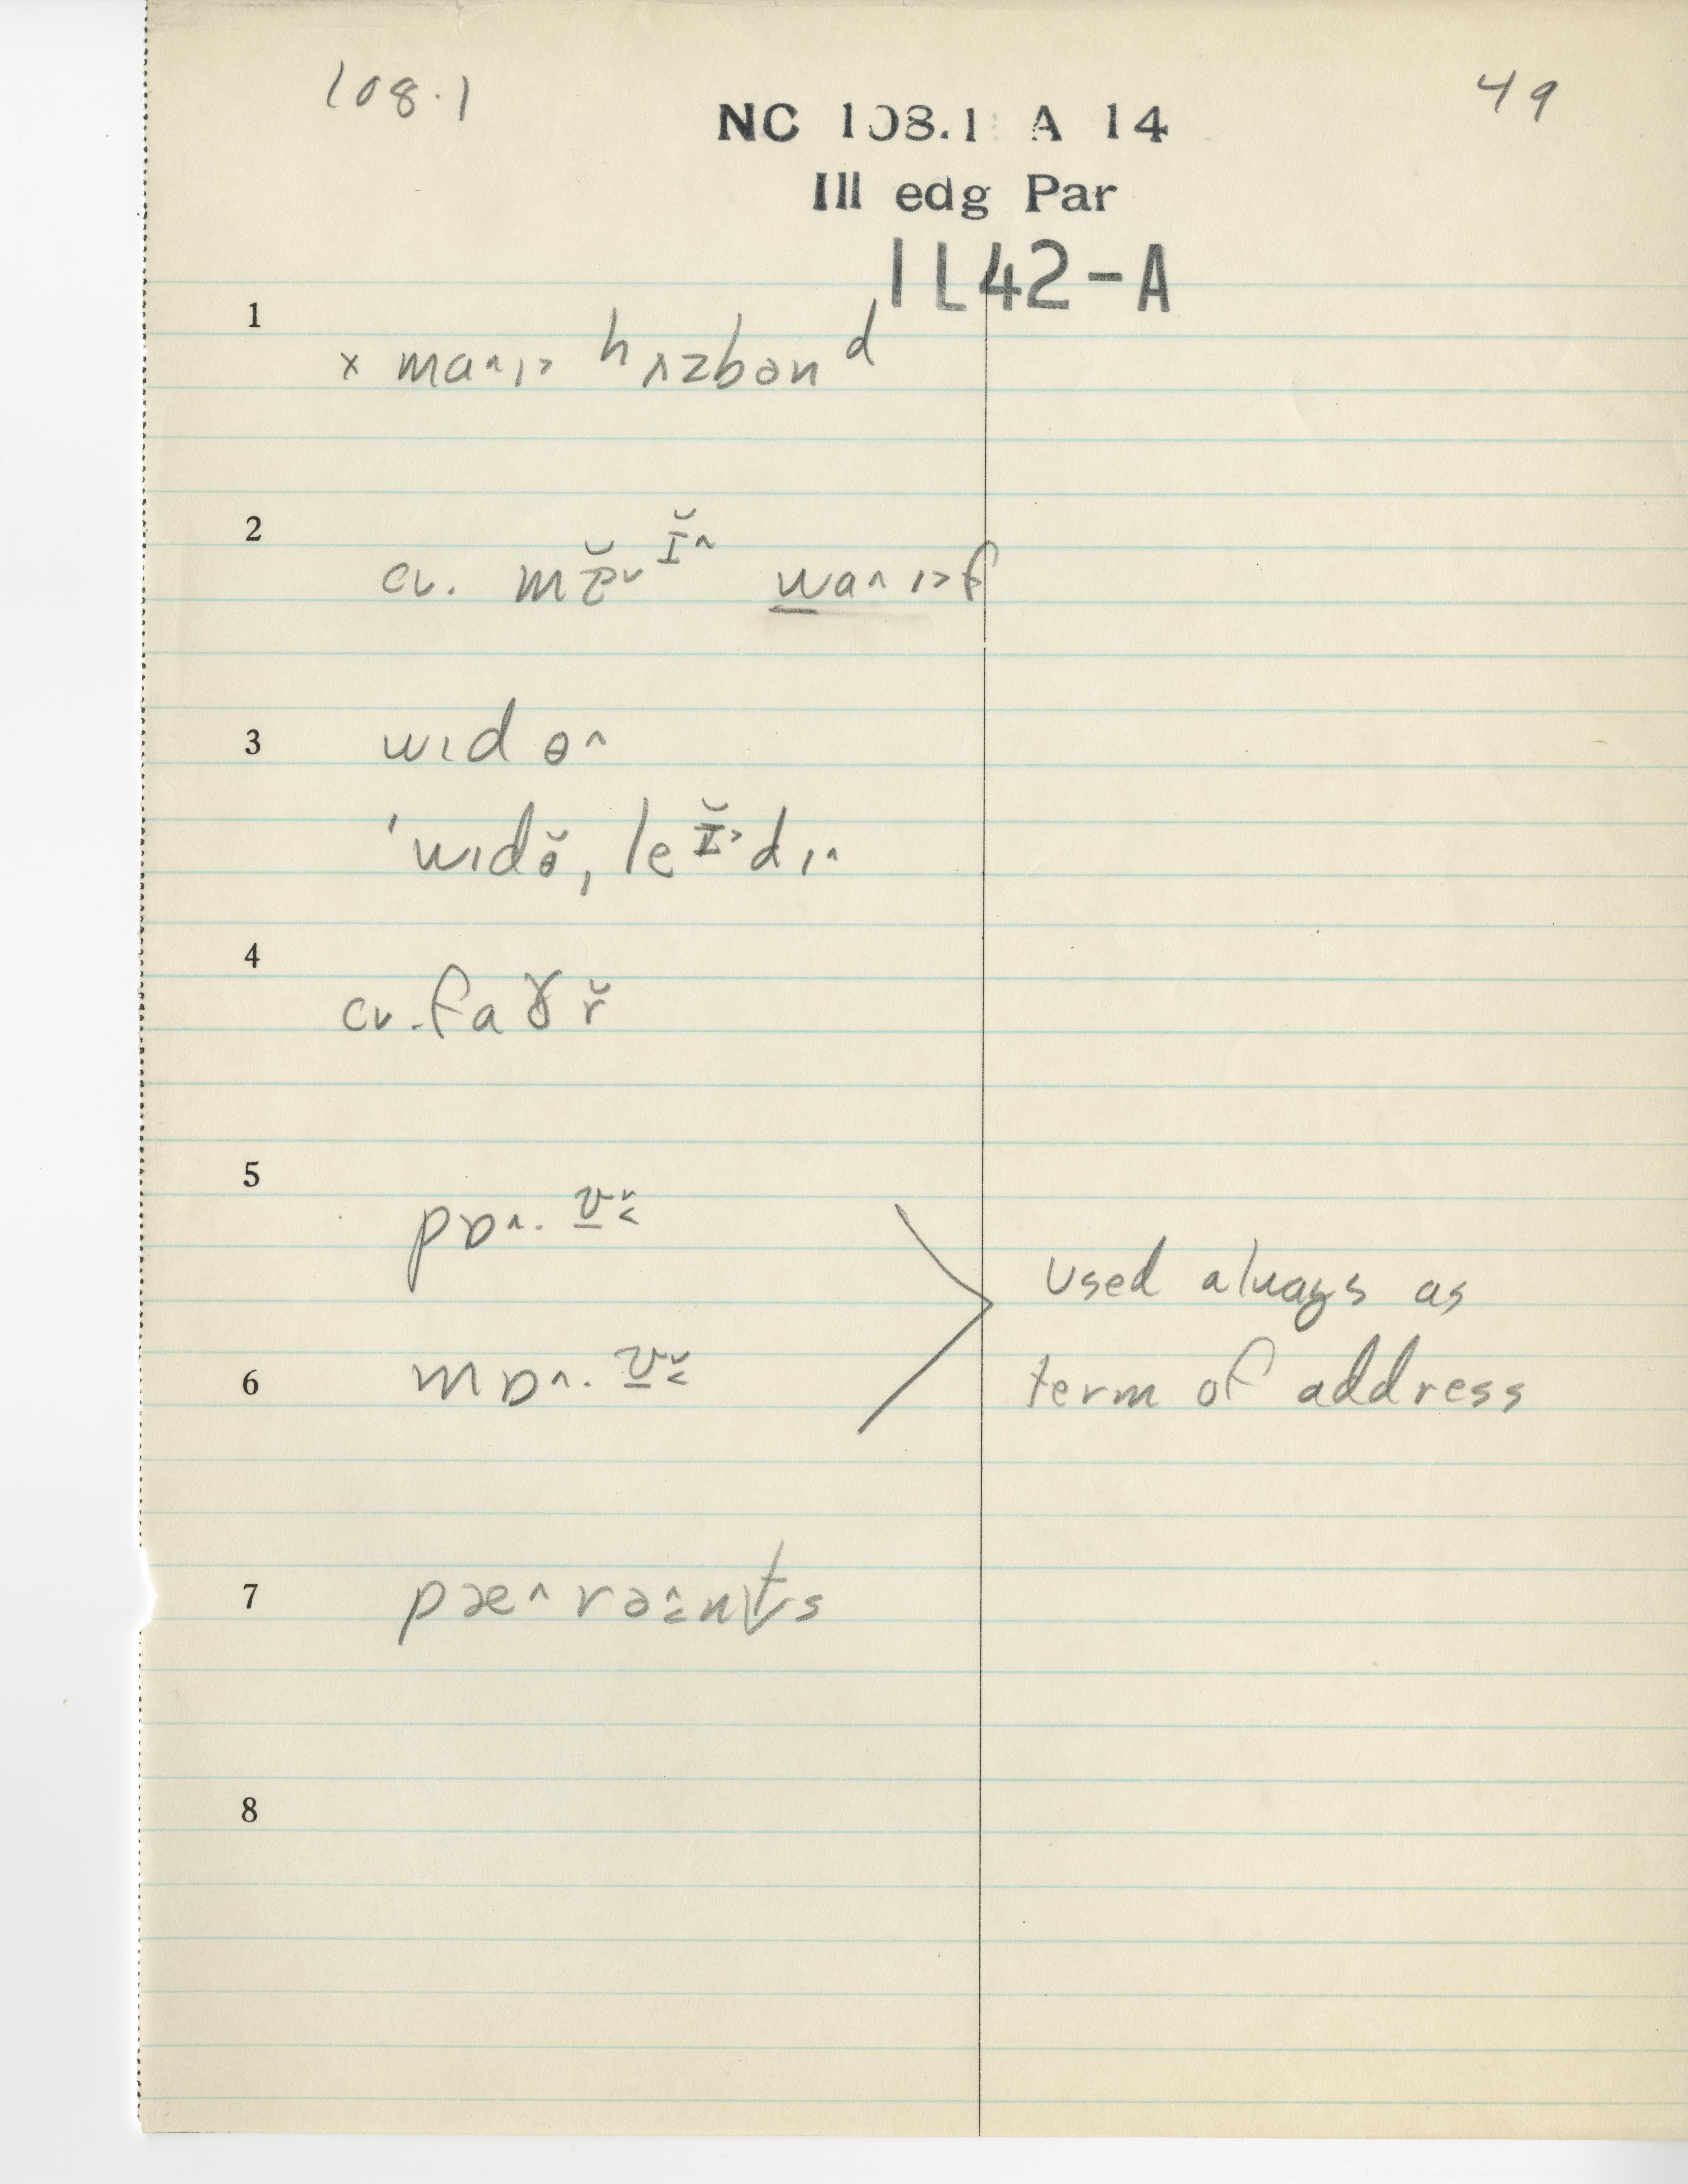 108.1
49
NC 108.1 A 14
Ill edg Par
IL42-A
1
× ma^ɪ> hʌzbənd
2
cv. mɪ̆^ wa^ɪ>f
3
wɪd ɵ^
'wɪdɵ̆, leɪ̆>dɪ^
4
cv. faɤr̆
5
pɒ^.
used always as
6
mɒ^.
term of address
7
pæ^rənts
8